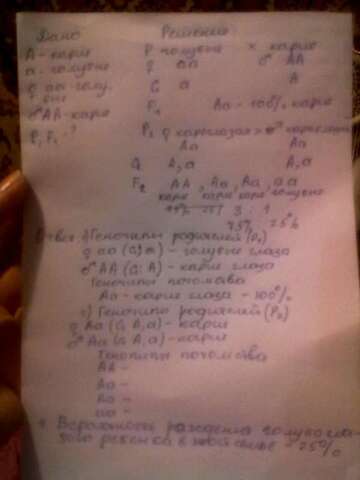 Дано Решение
А - карие P голубые × карие
а - голубые ♀ аа ♂ АА
♀ аа - голу- G а А
бые
♂ АА - карие F₁ Аа - 100% карие
P, F₁ - ? P₂ ♀ кареглазая × ♂ кареглазый
Аа Аа
G А, а А, а
F₂ АА, Аа, Аа, аа
карие карие карие голубые
3 : 1
75% 25%
Ответ: Генотипы родителей (P₁)
♀ аа (G: а) - голубые глаза
♂ АА (G: А) - карие глаза
Генотипы потомства
Аа - карие глаза - 100%
Генотипы родителей (P₂)
♀ Аа (G А, а) - карие
♂ Аа (G А, а) - карие
Генотипы потомства
АА -
Аа -
Аа -
аа -
Вероятность рождения голубогла-
зого ребенка в этой семье - 25%